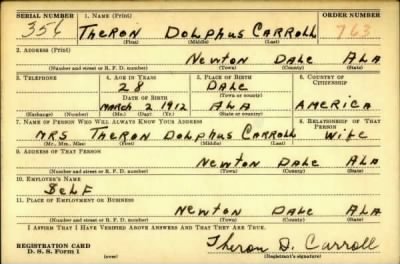 SERIAL NUMBER 1. NAME (Print) ORDER NUMBER
356 THERON DOLPHUS CARROLL 763
(First) (Middle) (Last)
2. ADDRESS (Print)
NEWTON DALE ALA
(Number and street or R. F. D. number) (Town) (County) (State)
3. TELEPHONE 4. AGE IN YEARS 5. PLACE OF BIRTH 6. COUNTRY OF CITIZENSHIP
28 DALE
DATE OF BIRTH (Town or county)
MARCH 2 1912 ALA AMERICA
(Exchange) (Number) (Mo.) (Day) (Yr.) (State or country)
7. NAME OF PERSON WHO WILL ALWAYS KNOW YOUR ADDRESS 8. RELATIONSHIP OF THAT PERSON
MRS THERON DOLPHUS CARROLL WIFE
(Mr., Mrs., Miss) (First) (Middle) (Last)
9. ADDRESS OF THAT PERSON
NEWTON DALE ALA
(Number and street or R. F. D. number) (Town) (County) (State)
10. EMPLOYER'S NAME
SELF
11. PLACE OF EMPLOYMENT OR BUSINESS
NEWTON DALE ALA
(Number and street or R. F. D. number) (Town) (County) (State)
I AFFIRM THAT I HAVE VERIFIED ABOVE ANSWERS AND THAT THEY ARE TRUE.
REGISTRATION CARD
D. S. S. Form 1 (over) Theron D. Carroll
(Registrant's signature)